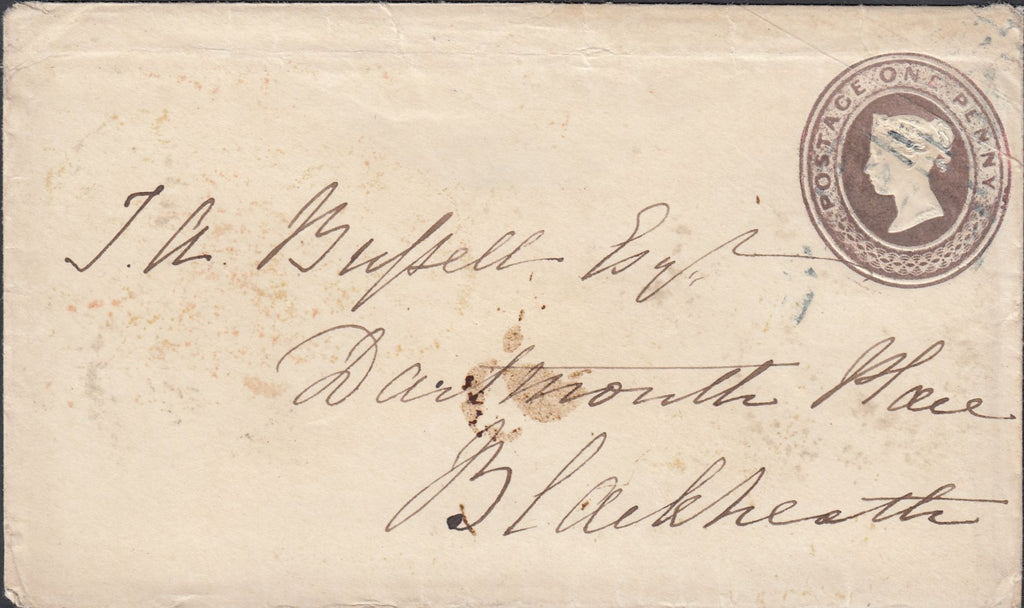 POSTAGE ONE PENNY
T. A. Bussell Esqr
Dartmouth Place
Blackheath